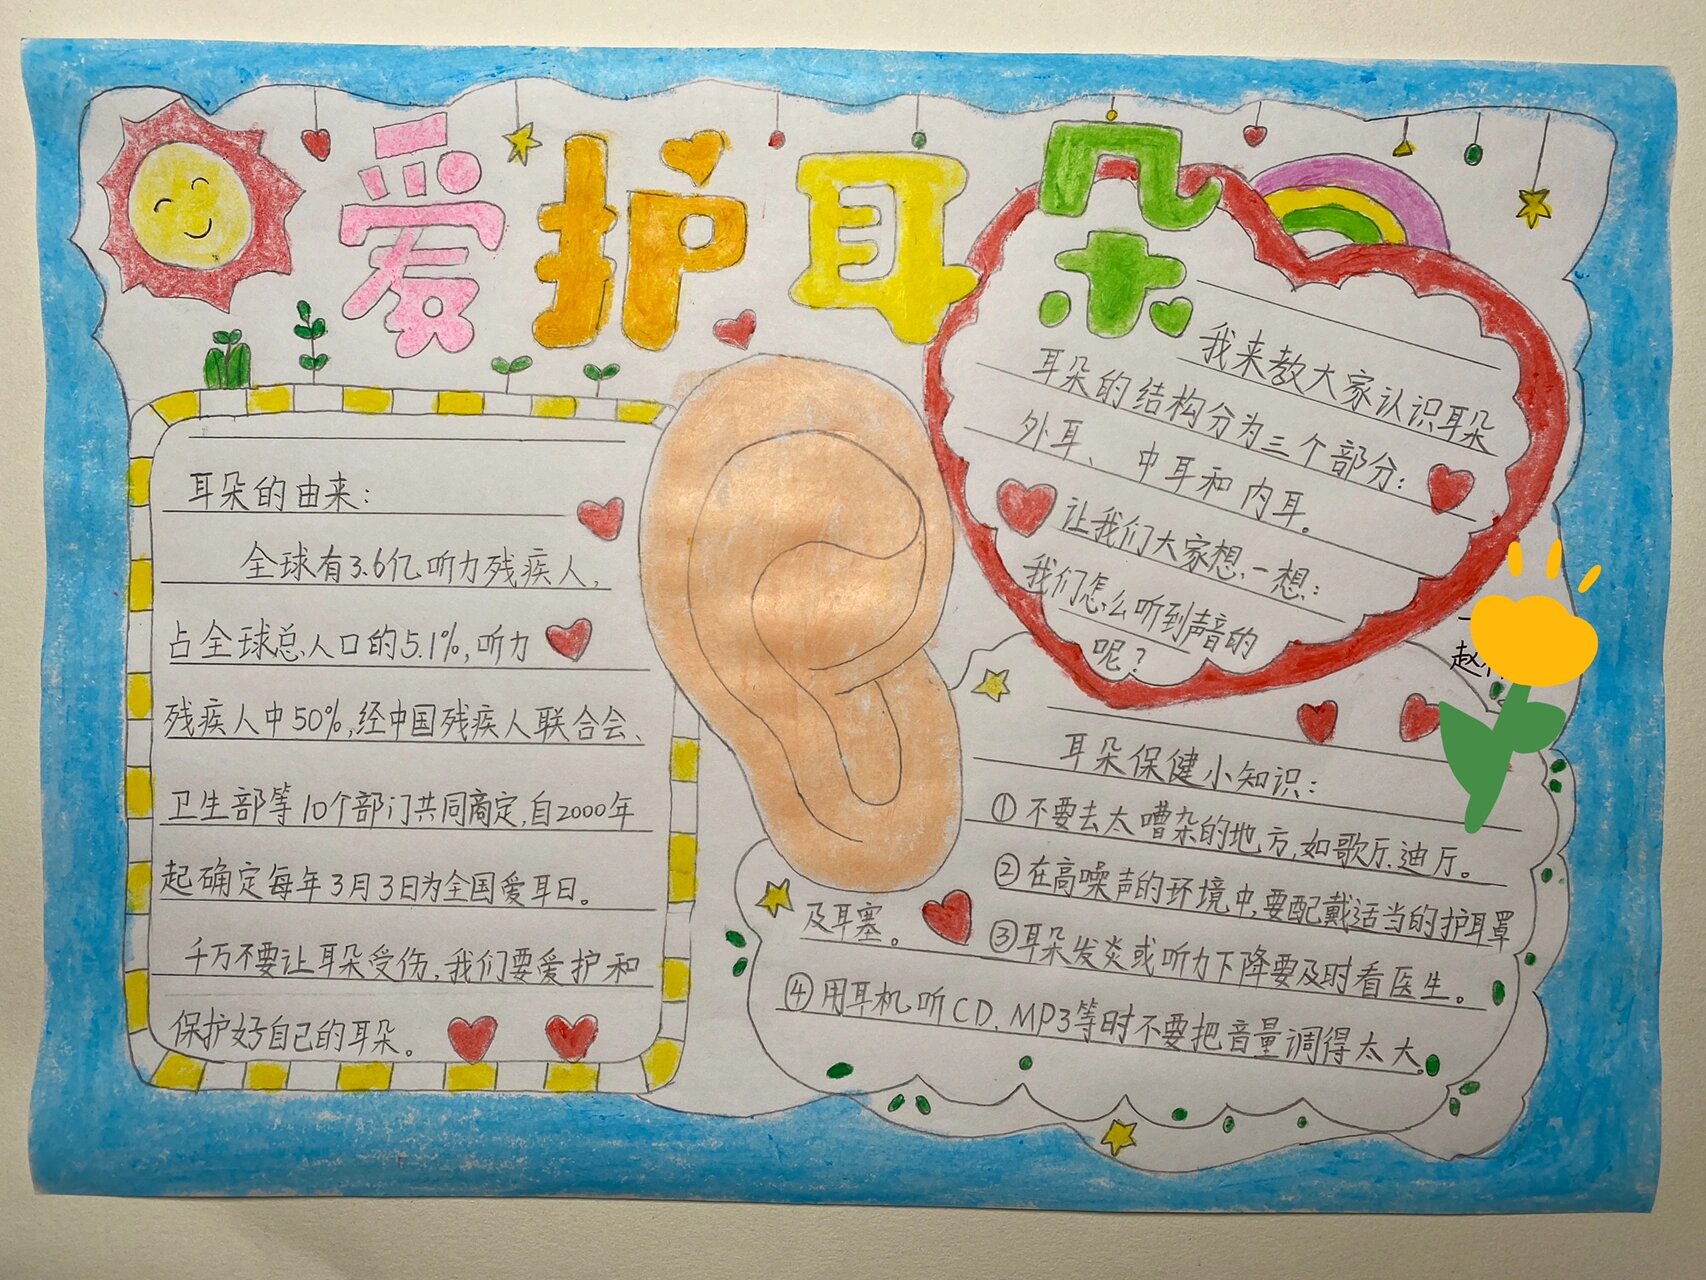 爱护耳朵
耳朵的由来：
全球有3.6亿听力残疾人，
占全球总人口的5.1%，听力
残疾人中50%，经中国残疾人联合会、
卫生部等10个部门共同商定，自2000年
起确定每年3月3日为全国爱耳日。
千万不要让耳朵受伤，我们要爱护和
保护好自己的耳朵。
我来教大家认识耳朵
耳朵的结构分为三个部分：
外耳、中耳和内耳。
让我们大家想一想：
我们怎么听到声音的
呢？
耳朵保健小知识：
①不要去太嘈杂的地方，如歌厅、迪厅。
②在高噪声的环境中，要配戴适当的护耳罩
及耳塞。
③耳朵发炎或听力下降要及时看医生。
④用耳机听CD、MP3等时不要把音量调得太大。
赵